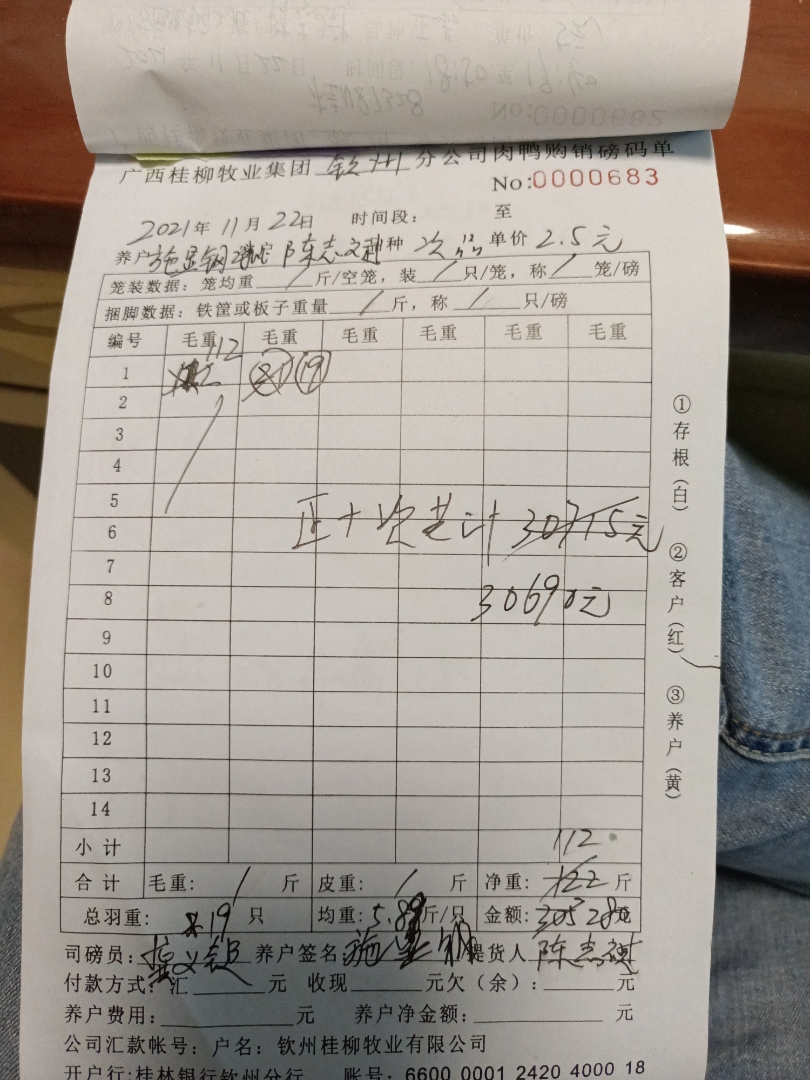 广西桂柳牧业集团 钦州 分公司肉鸭购销磅码单
No:0000683
2021年 11月 22日 时间段: 至
养户 施 钢 陈志 种 次品 单价 2.5元
笼装数据: 笼均重 / 斤/空笼, 装 / 只/笼, 称 / 笼/磅
捆脚数据: 铁筐或板子重量 / 斤, 称 / 只/磅
编号 毛重 毛重 毛重 毛重 毛重 毛重
1 112 21 19
2
3
4
5
正+次共计 30715元
6
7
8 30690元
9
10
11
12
13
14
小计 112
合计 毛重: / 斤 皮重: / 斤 净重: 122 斤
总羽重: 19 只 均重: 5.89斤/只 金额: 305 280元
司磅员: 养户签名: 施 钢 提货人 陈志
付款方式: 汇 元 收现 元欠(余): 元
养户费用: 元 养户净金额: 元
公司汇款帐号: 户名: 钦州桂柳牧业有限公司
开户行:桂林银行钦州分行 账号: 6600 0001 2420 4000 18
①存根(白) ②客户(红) ③养户(黄)